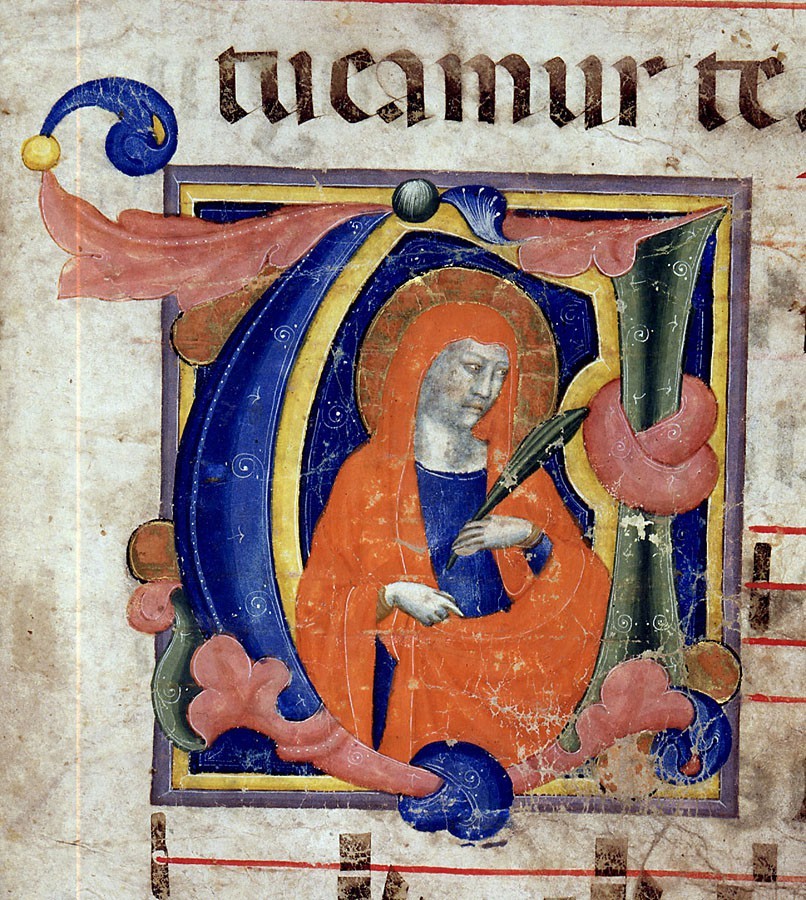 tueamur te